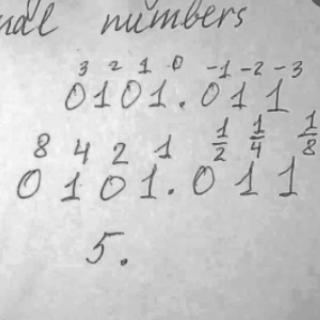 numbers
3 2 1 0 -1 -2 -3
0101.011
8 4 2 1 1/2 1/4 1/8
0101.011
5.